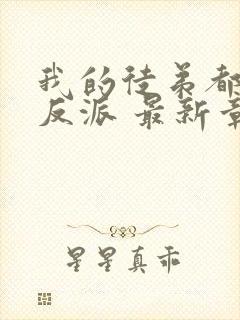 我的徒弟都
反派 最新章
星星真乖